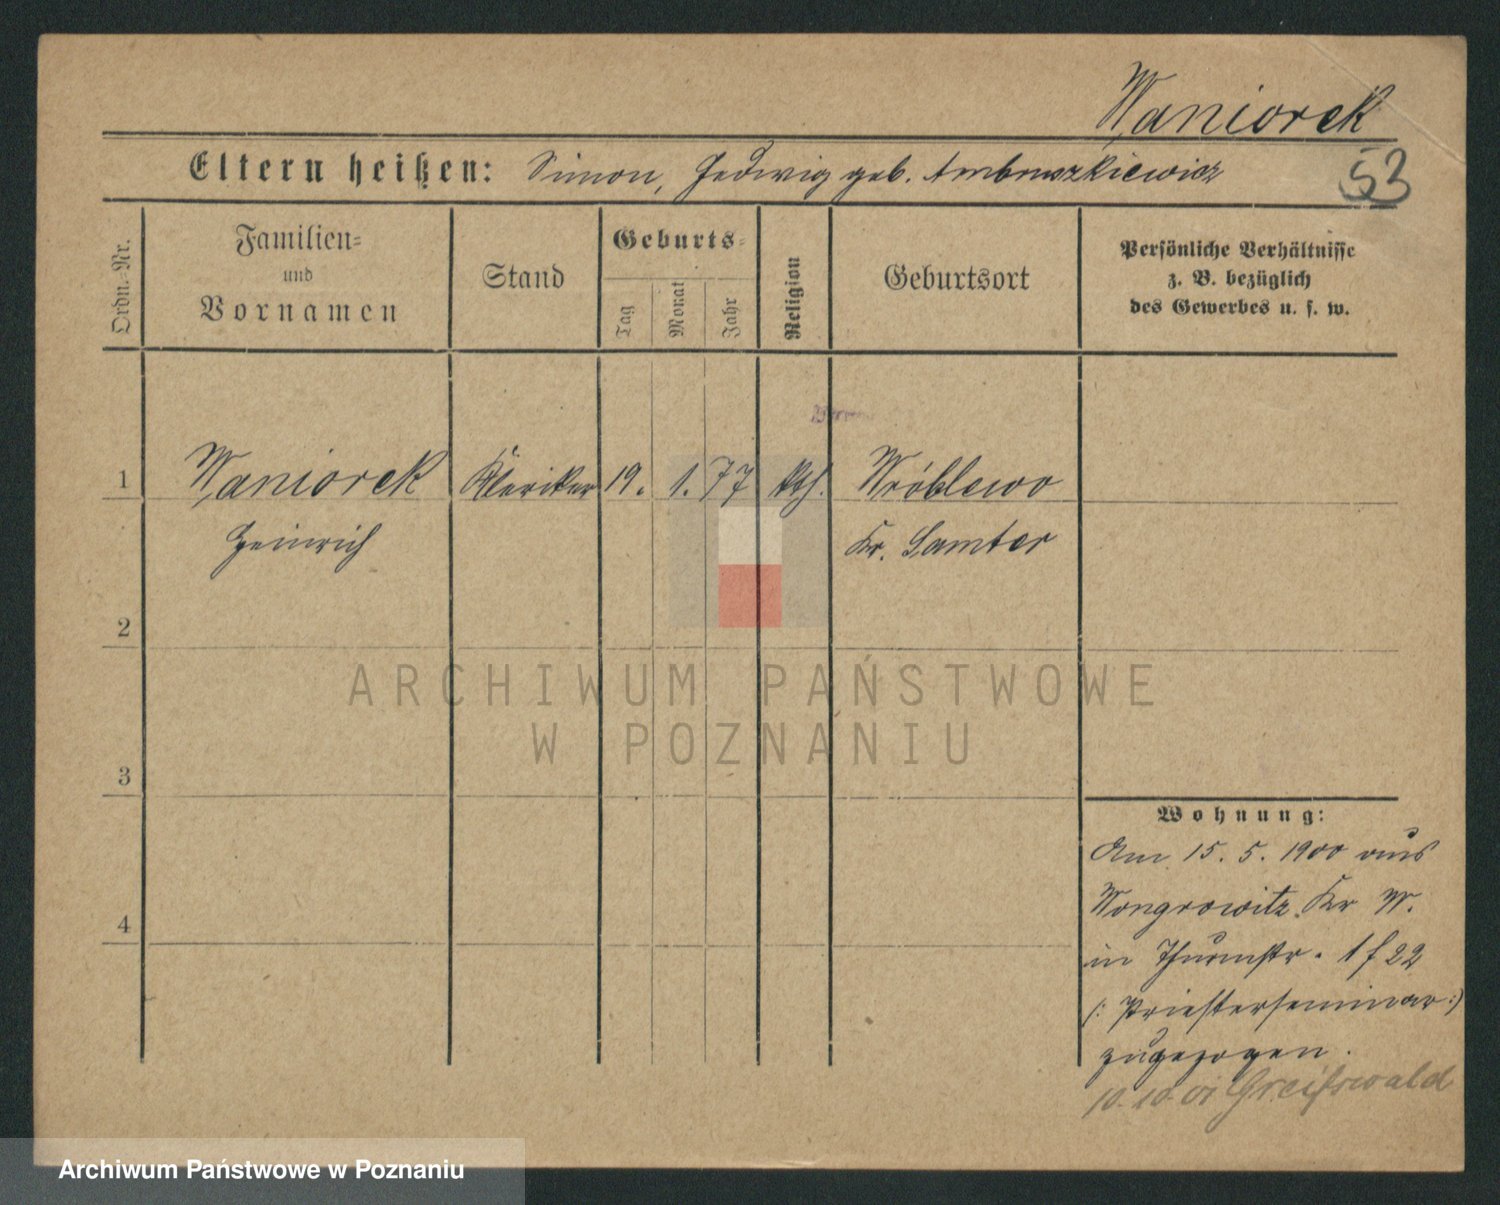 Waniorek
53
Eltern heißen: Simon, Hedwig geb. Ambruszkiewicz
Ordn.-Nr.
Familien-
und
Vornamen
Stand
Geburts-
Tag
Monat
Jahr
Religion
Geburtsort
Persönliche Verhältnisse
z. B. bezüglich
des Gewerbes u. s. w.
1 Waniorek Kleriker 19. 1. 77 kth. Wróblewo
Heinrich Kr. Samter
2
ARCHIWUM PAŃSTWOWE
W POZNANIU
3
Wohnung:
Am 15. 5. 1900 aus
Wongrowitz Kr W.
4
in Thurmstr. 1 f 22
(: Priesterseminar :)
zugezogen.
10.10.01 Greifswald
Archiwum Państwowe w Poznaniu